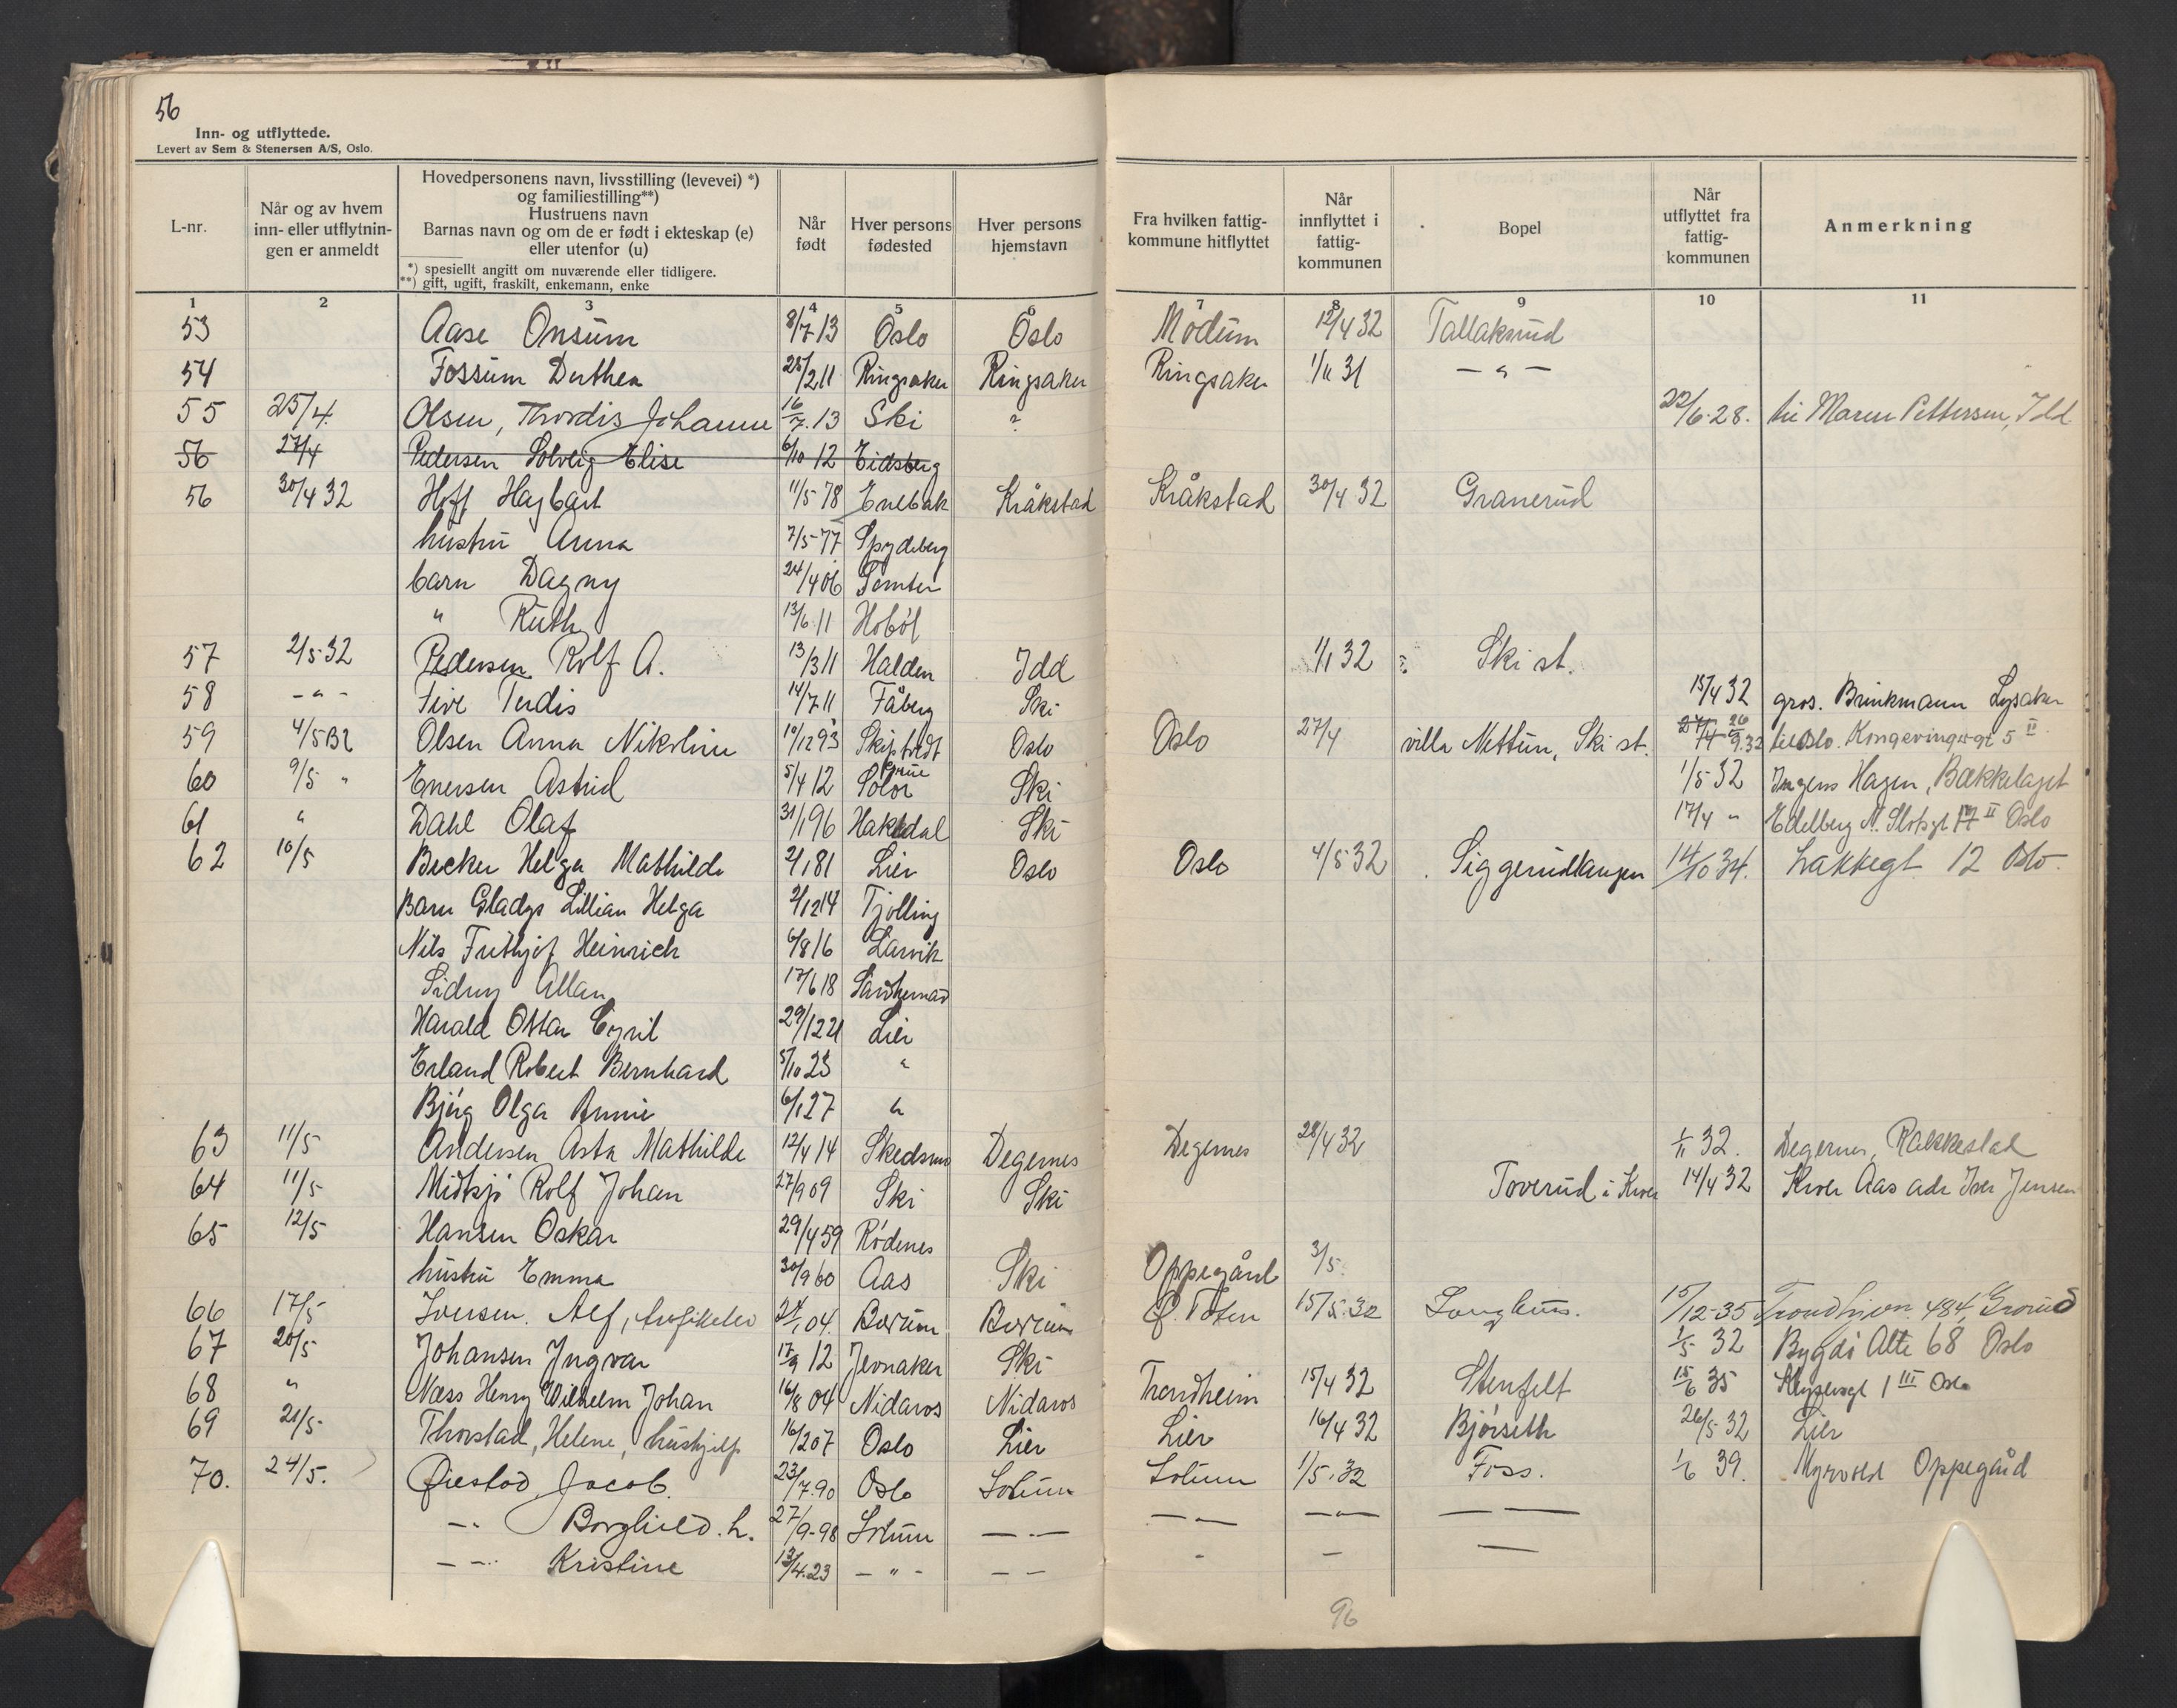 56
Inn- og utflyttede.
Levert av Sem & Stenersen A/S, Oslo.
L-nr.
Når og av hvem
inn- eller utflytnin-
gen er anmeldt
Hovedpersonens navn, livsstilling (levevei) *)
og familiestilling**)
Hustruens navn
Barnas navn og om de er født i ekteskap (e)
eller utenfor (u)
*) spesiellt angitt om nuværende eller tidligere.
**) gift, ugift, fraskilt, enkemann, enke
Når
født
Hver persons
fødested
Hver persons
hjemstavn
Fra hvilken fattig-
kommune hitflyttet
Når
innflyttet i
fattig-
kommunen
Bopel
Når
utflyttet fra
fattig-
kommunen
Anmerkning
1 2 3 4 5 6 7 8 9 10 11
53 Aase Onsum 8/7 13 Oslo Oslo Modum 12/4 32 Tallaksrud
54 Fossum Dorthea 28/2 11 Ringsaker Ringsaker Ringsaker 1/11 31 — " —
55 25/4. Olsen, Thordis Johanne 16/7. 13 Ski ? 22/6-28. til Maren Pettersen, Idd
56 27/4 Pedersen Solveig Elise 6/10 12 Eidsberg
56 30/4 32 Hoff Hagbart 11/5 78 Enebak Kråkstad Kråkstad 30/4 32 Granerud
hustru Anna 7/5-77 Spydeberg
barn Dagny 24/4 06 Tomter
" Ruth 13/6 11 Hobøl
57 2/5-32 Pedersen Rolf A. 13/3 11 Halden Idd 1/1 32 Ski st.
58 - " - Tive Terdis 14/7 11 Fåberg Ski 15/4 32 gros. Brinkmann Lysaker
59 4/5 32 Olsen Anna Nikoline 10/12 93 Skiptvedt Oslo Oslo 27/4 villa Nettun, Ski st. 26/9.32 til Oslo. Kongsvingergt 5 II
60 9/5 " Enersen Astrid 5/4 12 Grue Solør Ski 1/5-32 Ingens Hagen, Bækkelaget
61 " Dahl Olaf 31/1 96 Hakkdal Ski 17/4 " Edelberg N. Slotsgt 17 II Oslo
62 10/5 Becker Helga Mathilde 2/1 81 Lier Oslo Oslo 4/5 32 Siggerudtangen 14/10 34. Lakkegt 12 Oslo.
Barn Gladys Lillian Helga 2/12 14 Tjølling
Nils Frithjof Heinrich 6/8 16 Larvik
Sidney Allan 17/6 18 Sandherred
Harald Ottar Cyril 29/12 21 Lier
Erland Robert Bernhard 5/10 23 "
Bjørg Olga Annie 6/1 27 "
63 11/5 Andersen Asta Mathilde 12/4 14 Skedsmo Degernes Degernes 28/4 32 1/11 32. Degernes, Rakkestad
64 11/5 Midtsjø Rolf Johan 27/9 09 Ski Ski Toverud i Kroer 14/4 32 Kroer Aas adr Iver Jensen
65 12/5 Hansen Oskar 29/4 59 Rødenes
hustru Emma 30/9 60 Aas Ski Oppegård 3/5.
66 17/5 Iversen. Alf, 24/1 04. Bærum Bærum Ø. Toten 15/5.32 Langhus. 15/12-35 Trondhjvn. 484, Grorud
67 20/5 Johansen Ingvar 17/9 12 Jevnaker Ski 1/5 32 Bygdø Alle 68 Oslo
68 " Næss Henry Wilhelm Johan 16/8 04 Nidaros Nidaros Trondheim 15/4 32 Stenfelt 15/6 35 1 III Oslo
69 21/5- Thorstad, Helene, hushjelp 16/2 07 Oslo Lier Lier 16/4 32 Bjørseth 26/5-32 Lier
70. 24/5. Øiestad, Jacob. 23/7.90 Oslo Solum Solum 1/5.32 Foss. 1/6 39. Myrvold Oppegård
— " Borghild. h. 27/9-98 Solum — " — — " — — " — — —
— " — Kristine 13/4.23 — " — — — - — —
96